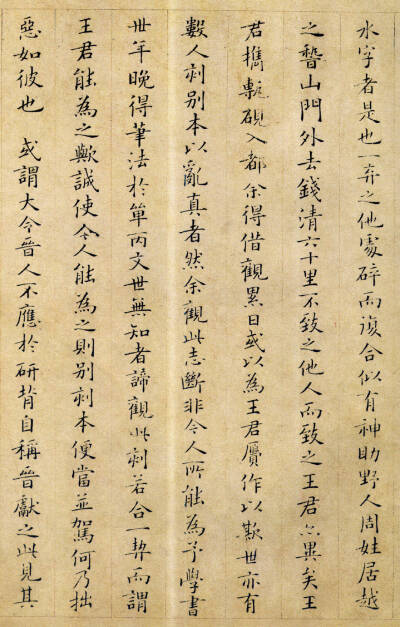 水字者是也一弃之他處碎而復合似有神助野人周姓居越
之稽山門外去錢清六十里不致之他人而致之王君亦異矣王
君攜甎硯入都余得借觀累日或以為王君贗作以欺世亦有
數人刻别本以亂真者然余觀此志斷非今人所能為予學書
丗年晚得筆法於單丙文世無知者諦觀此刻若合一契而謂
王君能為之歟誠使今人能為之則别刻本便當並駕何乃拙
惡如彼也 或謂大令晉人不應於研背自稱晉獻之此見其